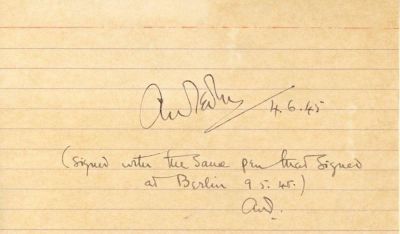 AWTedder 4.6.45
(signed with the same pen that signed
at Berlin 9.5.45.)
AWT.